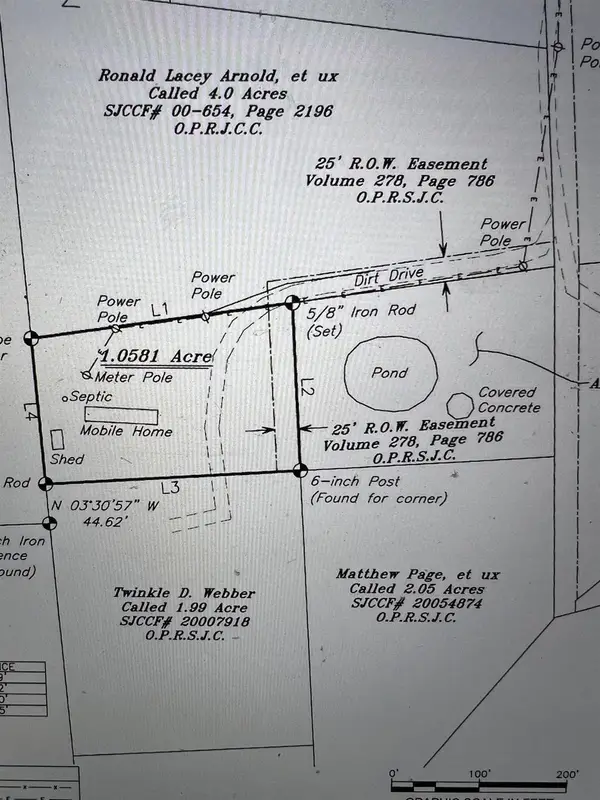 Ronald Lacey Arnold, et ux
Called 4.0 Acres
SJCCF# 00-654, Page 2196
O.P.R.J.C.C.
25' R.O.W. Easement
Volume 278, Page 786
O.P.R.S.J.C.
Power
Pole
Dirt Drive
Power
Pole
Power
Pole
L1
5/8" Iron Rod
(Set)
1.0581 Acre
Meter Pole
Septic
Mobile Home
Shed
L4
L2
L3
Pond
Covered
Concrete
25' R.O.W. Easement
Volume 278, Page 786
O.P.R.S.J.C.
Rod
N 03°30'57" W
44.62'
6-inch Post
(Found for corner)
Iron
Twinkle D. Webber
Called 1.99 Acre
SJCCF# 20007918
O.P.R.S.J.C.
Matthew Page, et ux
Called 2.05 Acres
SJCCF# 20054874
O.P.R.S.J.C.
0' 100' 200'
GRAPHIC SCALE IN FEET